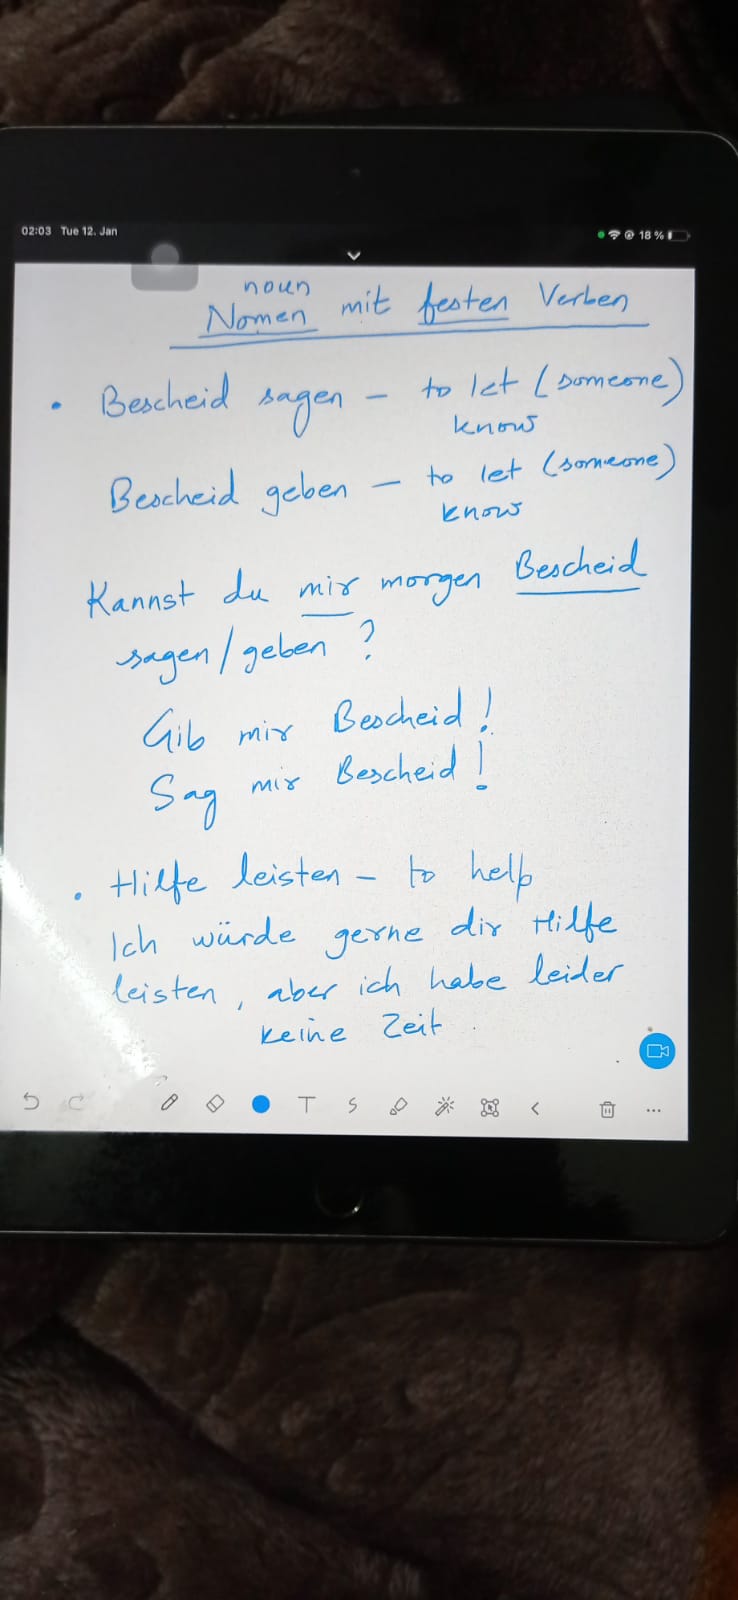 02:03 Tue 12. Jan
18 %
noun
Nomen mit festen Verben
• Bescheid sagen – to let (someone)
know
Bescheid geben – to let (someone)
know
Kannst du mir morgen Bescheid
sagen/geben ?
Gib mir Bescheid!
Sag mir Bescheid!
• Hilfe leisten – to help
Ich würde gerne dir Hilfe
leisten, aber ich habe leider
keine Zeit
T S